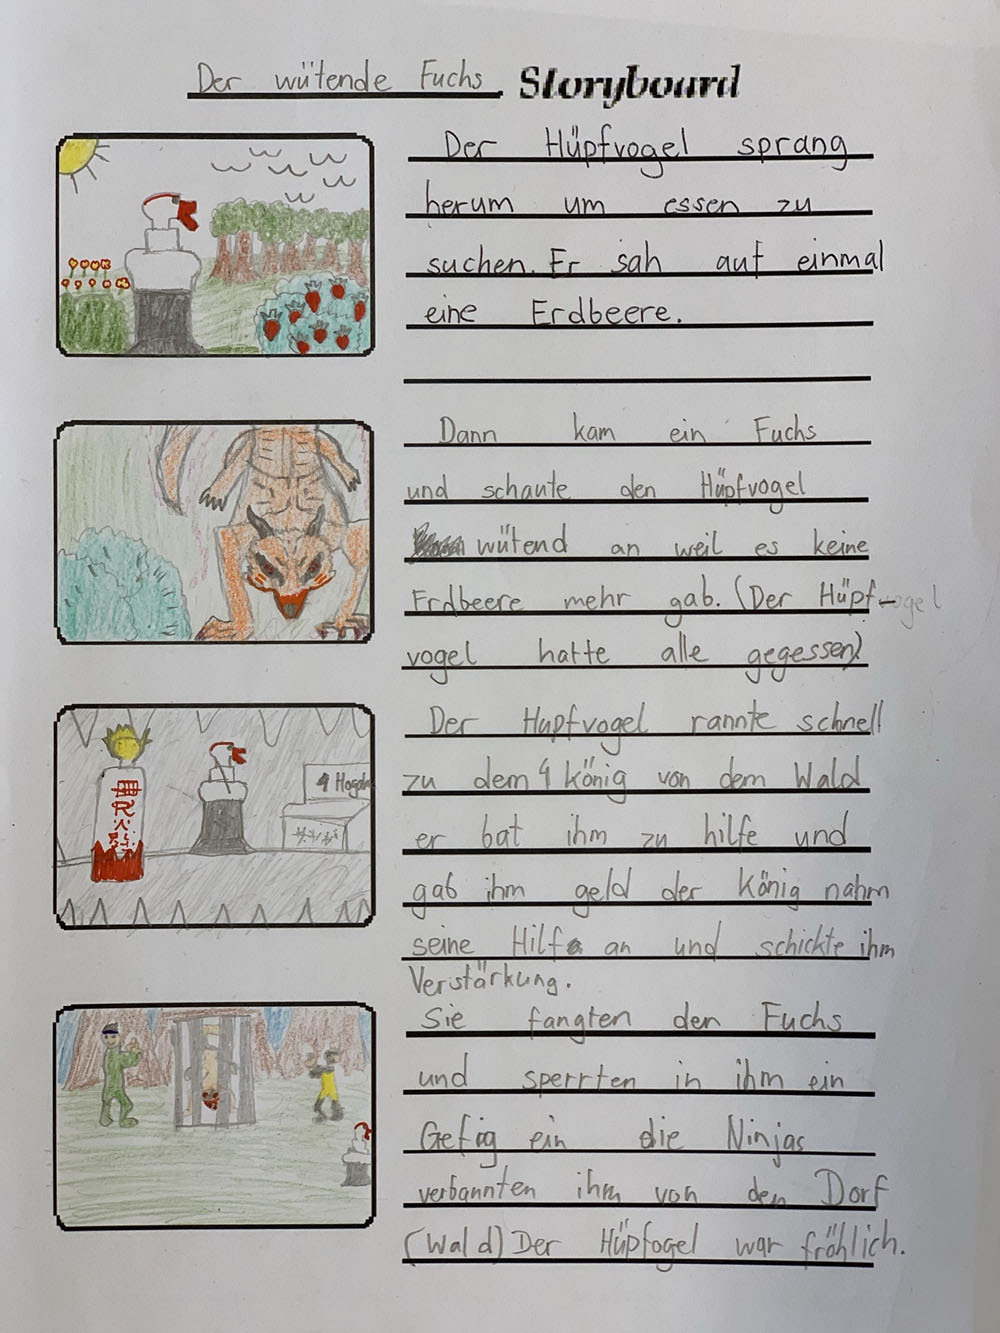 Der wütende Fuchs Storyboard
Der Hüpfvogel sprang
herum um essen zu
suchen. Er sah auf einmal
eine Erdbeere.
Dann kam ein Fuchs
und schaute den Hüpfvogel
wütend an weil es keine
Erdbeere mehr gab. (Der Hüpf-vogel
vogel hatte alle gegessen)
Der Hupfvogel rannte schnell
zu dem 4 könig von dem Wald
er bat ihm zu hilfe und
gab ihm geld der König nahm
seine Hilfe an und schickte ihm
Verstärkung.
Sie fangten den Fuchs
und sperrten in ihm ein
Gefig ein die Ninjas
verbannten ihm von den Dorf
(Wald) Der Hüpfogel war fröhlich.